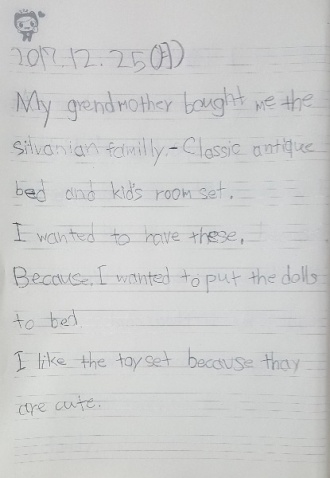 2017.12.25(月)
My grandmother bought me the
silvanian familly.-Classic antique
bed and kid's room set.
I wanted to have these.
Because. I wanted to put the dolls
to bed
I like the toy set because thay
are cute.